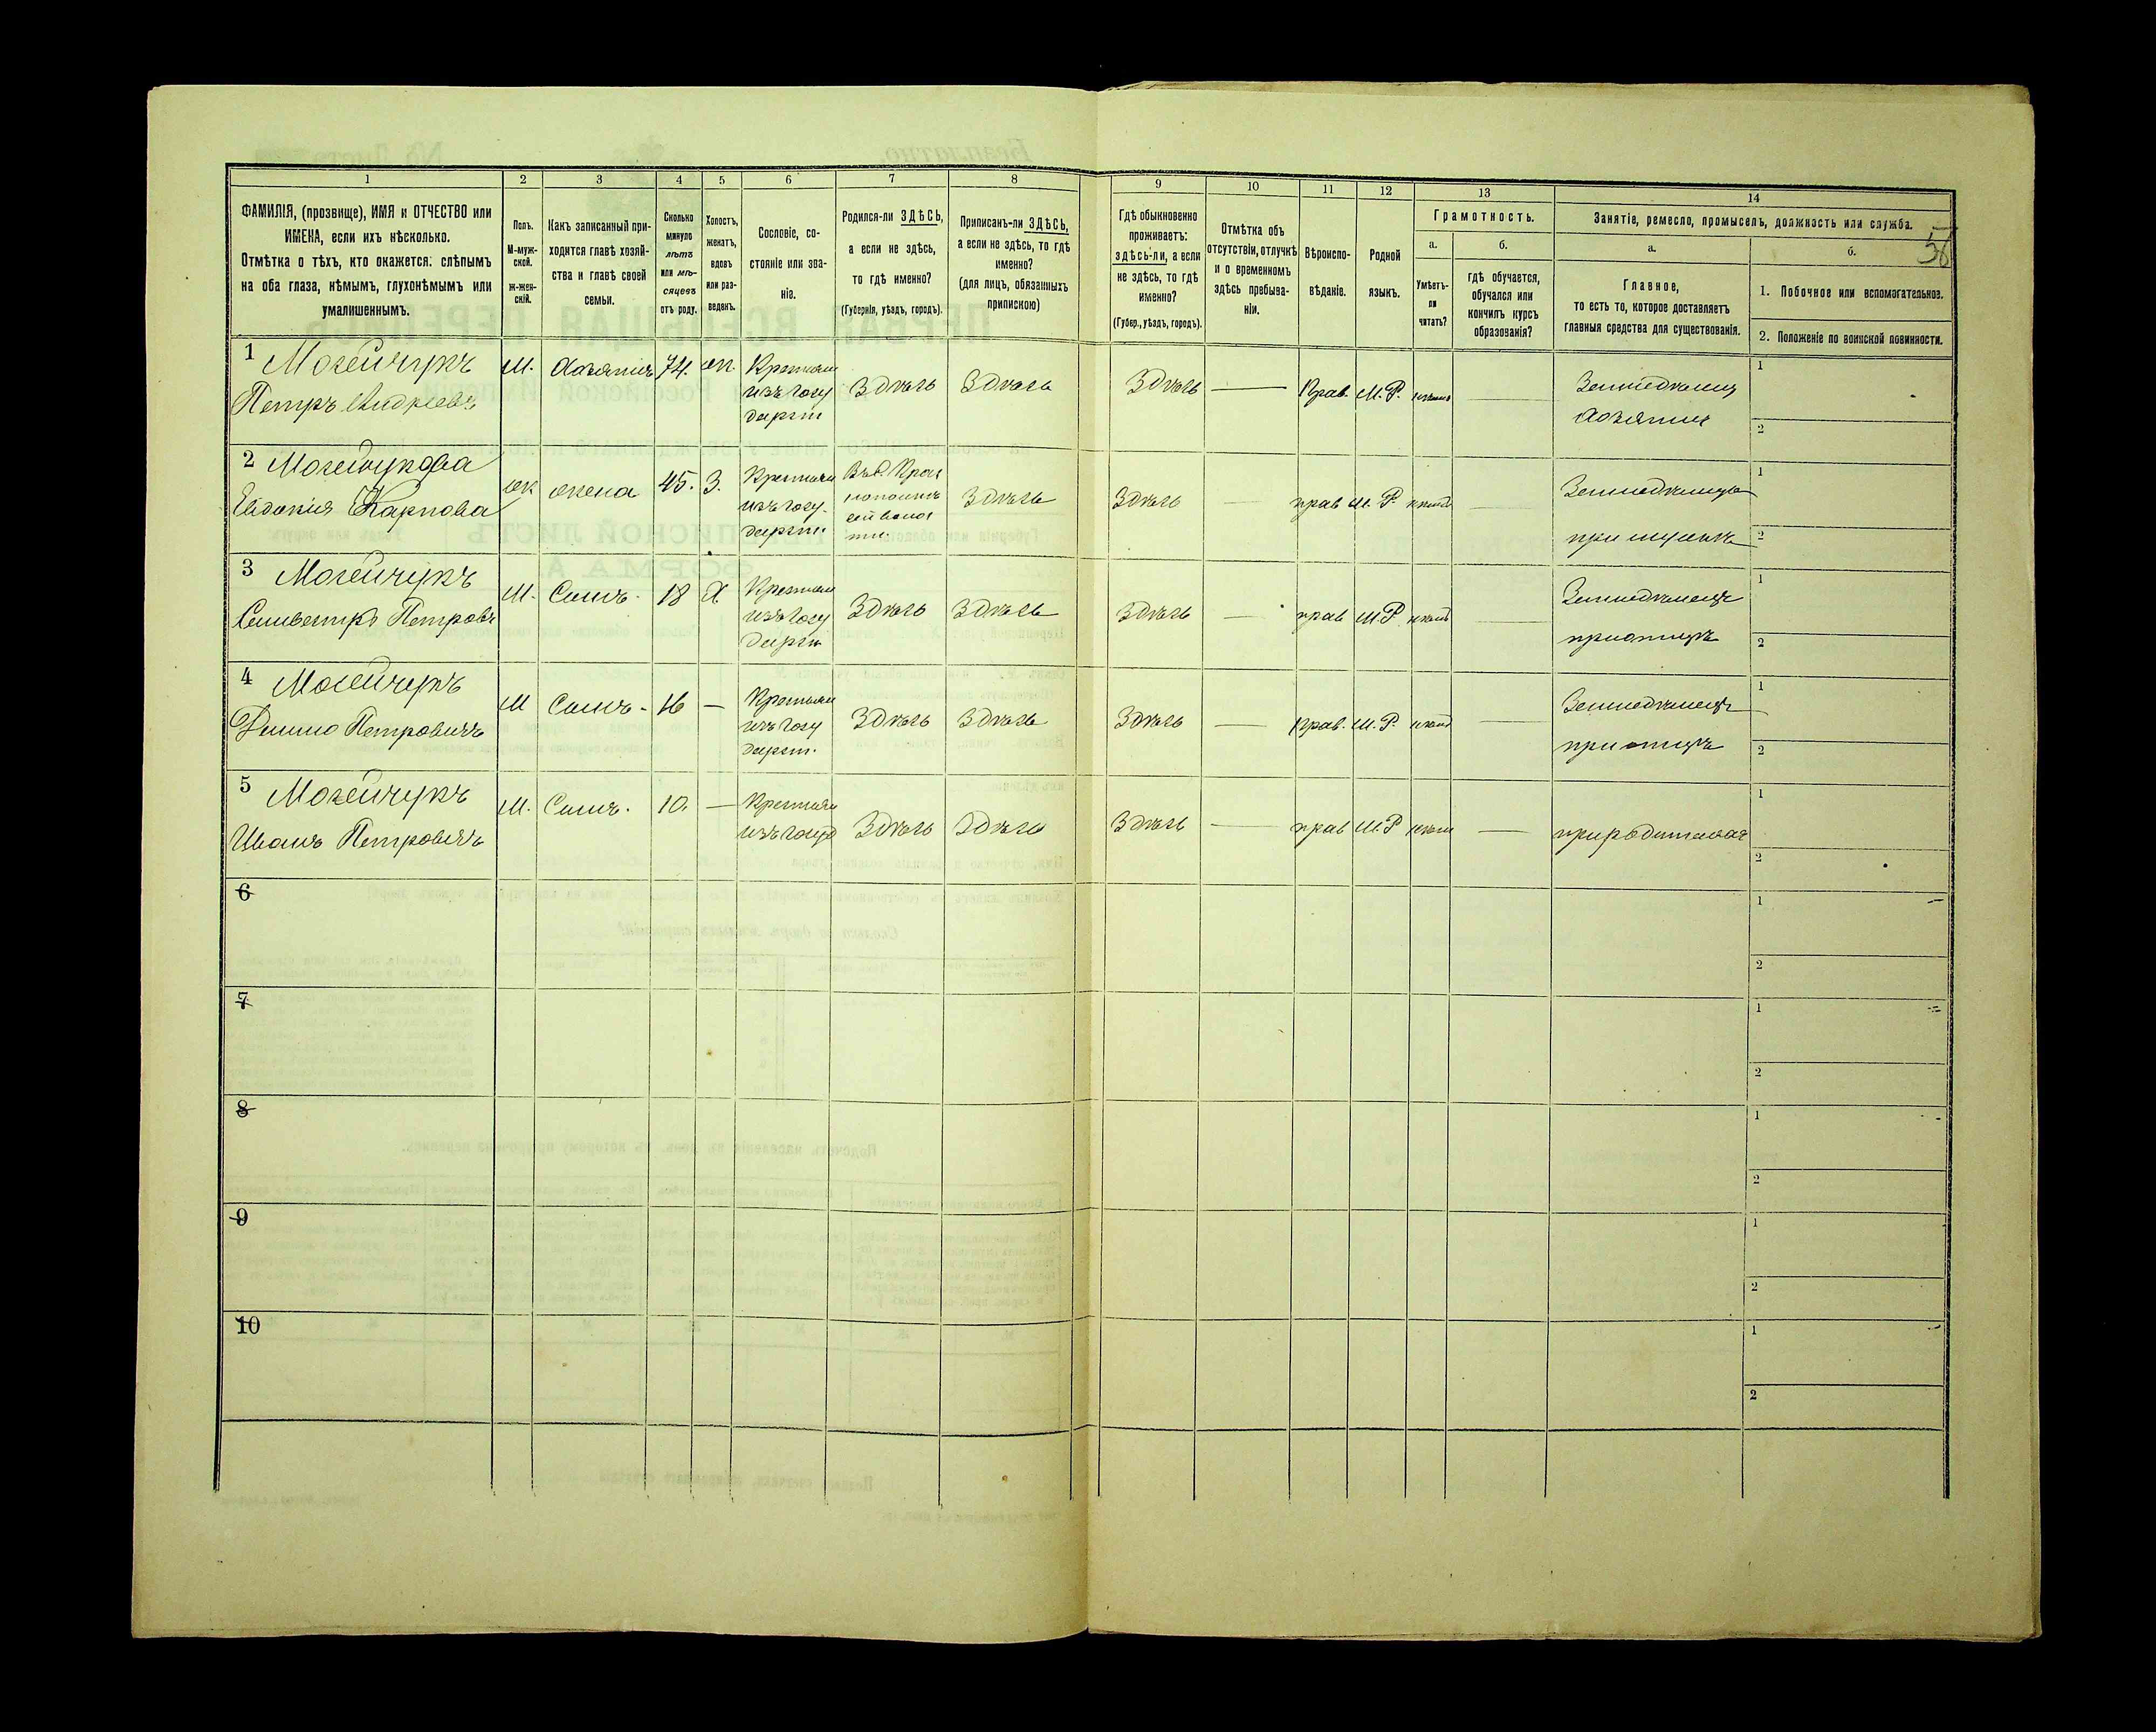 1 2 3 4 5 6 7 8 9 10 11 12 13 14
ФАМИЛІЯ, (прозвище), ИМЯ и ОТЧЕСТВО или
ИМЕНА, если ихъ нѣсколько.
Отмѣтка о тѣхъ, кто окажется: слѣпымъ
на оба глаза, нѣмымъ, глухонѣмымъ или
умалишеннымъ.
Полъ.
М-муж-
ской.
ж-жен-
скій.
Какъ записанный при-
ходится главѣ хозяй-
ства и главѣ своей
семьи.
Сколько
минуло
лѣтъ
или мѣ-
сяцевъ
отъ роду.
Холостъ,
женатъ,
вдовъ
или раз-
веденъ.
Сословіе, со-
стояніе или зва-
ніе.
Родился-ли ЗДѢСЬ,
а если не здѣсь,
то гдѣ именно?
(Губернія, уѣздъ, городъ).
Приписанъ-ли ЗДѢСЬ,
а если не здѣсь, то гдѣ
именно?
(для лицъ, обязанныхъ
припискою)
Гдѣ обыкновенно
проживаетъ:
здѣсь-ли, а если
не здѣсь, то гдѣ
именно?
(Губер., уѣздъ, городъ).
Отмѣтка объ
отсутствіи, отлучкѣ
и о временномъ
здѣсь пребыва-
ніи.
Вѣроиспо-
вѣданіе.
Родной
языкъ.
Грамотность.
а.
Умѣетъ-
ли
читать?
б.
гдѣ обучается,
обучался или
кончилъ курсъ
образованія?
Занятіе, ремесло, промыселъ, должность или служба.
56
а.
Главное,
то есть то, которое доставляетъ
главныя средства для существованія.
б.
1. Побочное или вспомогательное.
2. Положеніе по воинской повинности.
1 Могейчукъ
Петръ Андреевъ
М. Хозяинъ 74. ж.
Крестьян
изъ госу
дарст
Здѣсь Здѣсь Здѣсь — Прав. М.Р.
Земледѣлец
Хозяинъ
1
2
2 Могейчукова
Евдокія Карпова
ж жена 45. З.
Крестьян
изъ госу-
дарст.
Здѣсь Здѣсь — прав М.Р.
Земледѣлица
при мужѣ
1
2
3 Могейчукъ
Селивестръ Петровъ
М. Сынъ. 18 Х
Крестьян
изъ госу
дарст
Здѣсь Здѣсь Здѣсь — прав М.Р —
Земледѣлецъ
при отцѣ
1
2
4 Могейчукъ
Петровичъ
М Сынъ - 16 —
Крестьян
изъ госу
дарст.
Здѣсь Здѣсь Здѣсь — Прав. М.Р. —
Земледѣлецъ
при отцѣ
1
2
5 Могейчукъ
Иванъ Петровичъ
М. Сынъ. 10. —
Крестьян
изъ госуд
Здѣсь Здѣсь Здѣсь — прав М.Р —
при родителяхъ
1
2
6
1
2
7
1
2
8
1
2
9
1
2
10
1
2